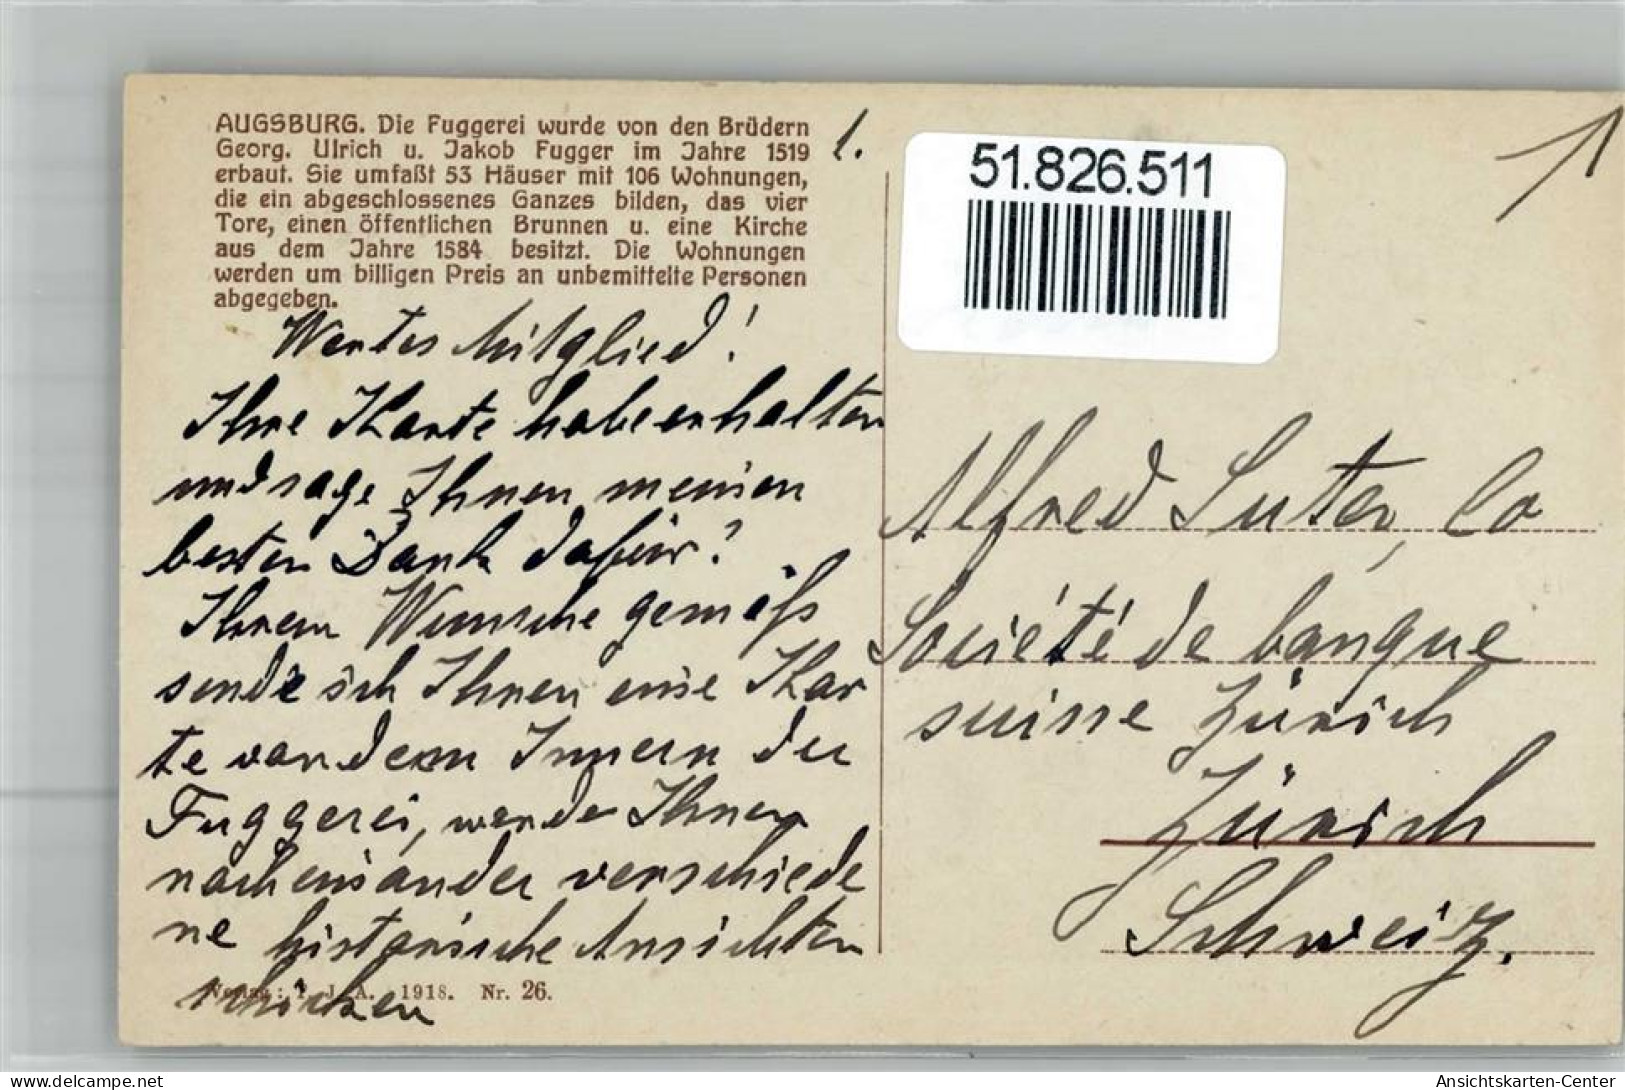 AUGSBURG. Die Fuggerei wurde von den Brüdern
Georg. Ulrich u. Jakob Fugger im Jahre 1519
erbaut. Sie umfaßt 53 Häuser mit 106 Wohnungen,
die ein abgeschlossenes Ganzes bilden, das vier
Tore, einen öffentlichen Brunnen u. eine Kirche
aus dem Jahre 1584 besitzt. Die Wohnungen
werden um billigen Preis an unbemittelte Personen
abgegeben.
1.
51.826.511
Wertes Mitglied!
Ihre Karte habe erhalten
und sage Ihnen meinen
besten Dank dafür?
Ihrem Wunsche gemäß
sende ich Ihnen eine Kar
te von dem Innern der
Fuggerei, werde Ihnen
nacheinander verschiede
ne historische Ansichten
schicken
Verlag: J. A. 1918. Nr. 26.
Alfred Suter, Co
Société de banque
suisse Zürich
Zürich
Schweiz.
delcampe.net
Ansichtskarten-Center